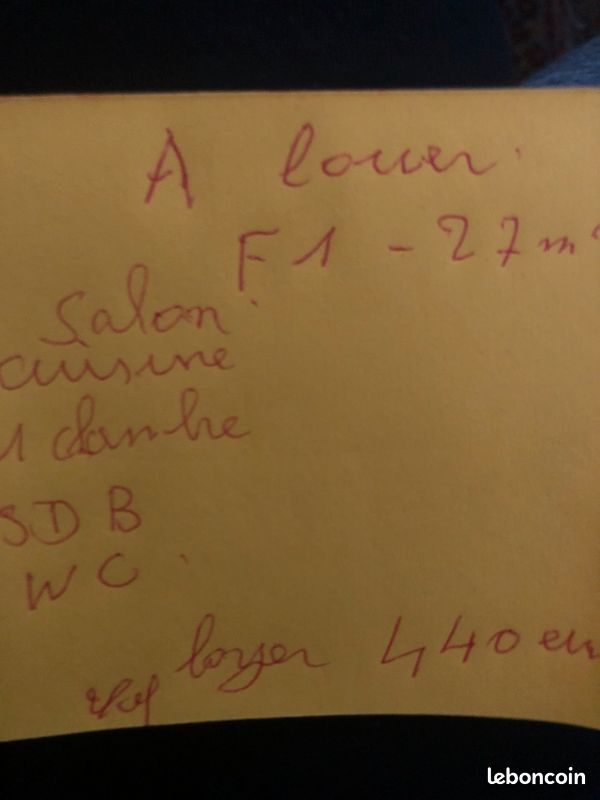 A louer
F1 - 27 m²
Salon
cuisine
1 chambre
SDB
WC
loyer 440 eu
leboncoin